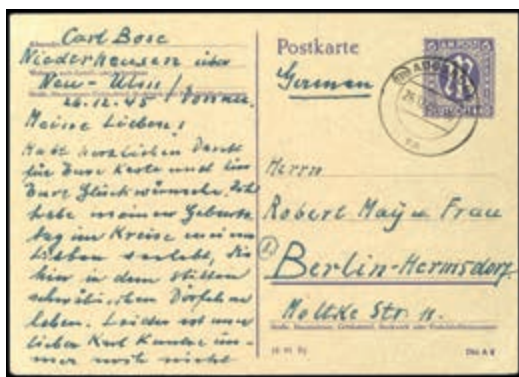 Carl Bose
Niederhausen über
Neu-Ulm / Donau.
26.12.45
Meine Lieben!
Habt herzlichen Dank
für Eure Karte und für
Eure Glückwünsche. Ich
habe meinen Geburts
tag im Kreise meiner
Lieben verlebt, die
hier in dem stillen
schwäbischen Dörfchen
leben. Leider ist unser
lieber Karl
immer noch nicht
Postkarte
Germany
AM POST
DEUTSCHLAND
Herrn
Robert May u. Frau
Berlin-Hermsdorf.
Moltke Str. 11.